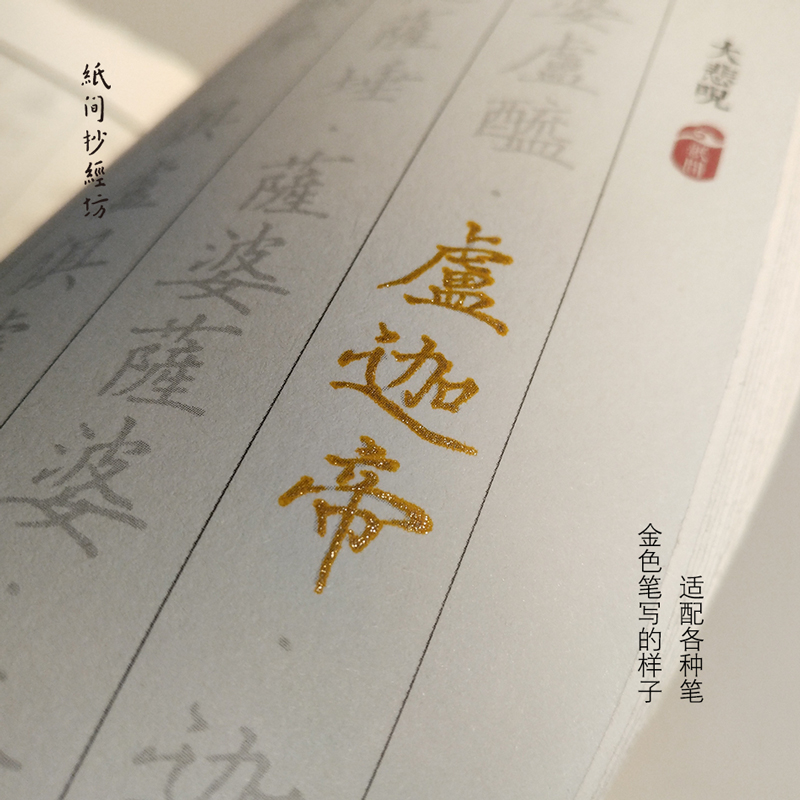 大悲呪
紙間
婆盧醯·盧迦帝·迦
薩埵·薩婆薩婆·
紙间抄經坊
适配各种笔
金色笔写的样子